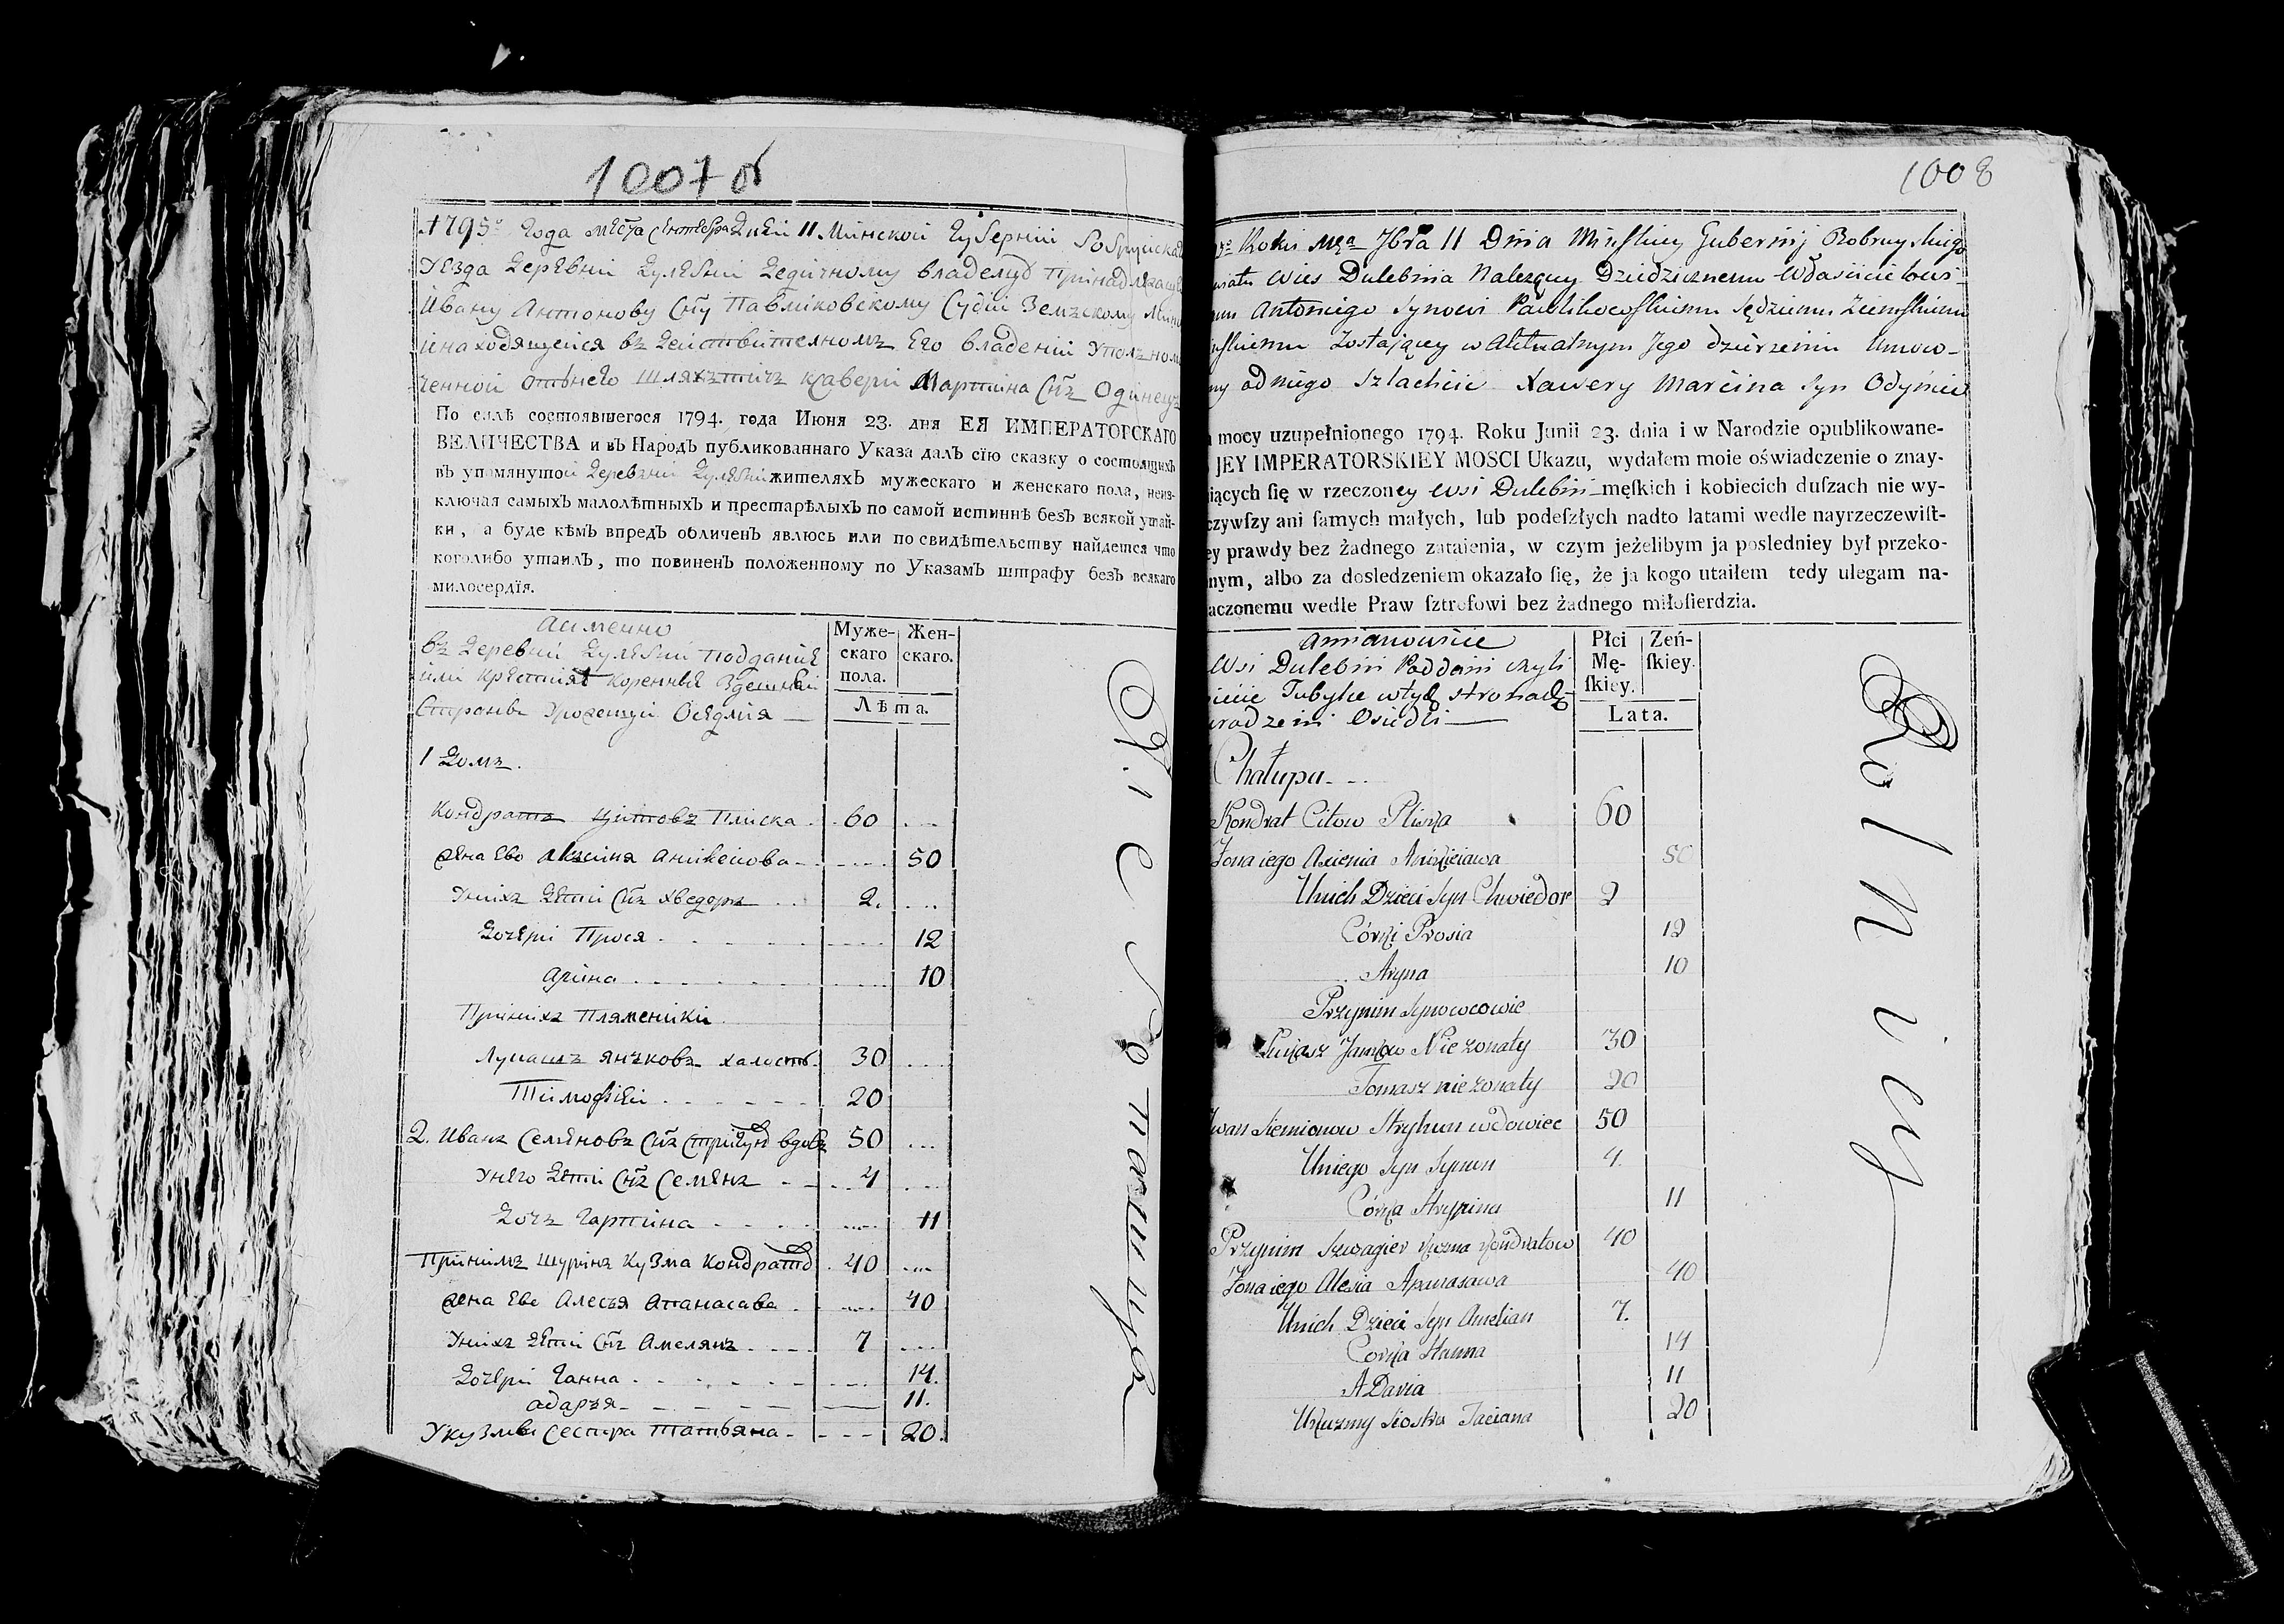 1007 об
1795го года мсца сентебра дней 11 Минской губерний Бобруйска
уезда деревни Дулебни дедичному владелцу принадлежаще
Ивану Антонову сну Павликовскому судии Земскому Мин
и находящейся в действителном его владений уполном
ченной от него шляхтич Ксаверий Мартина снъ Одинецъ
По силѣ состоявшегося 1794. года Июня 23. дня ЕЯ ИМПЕРАТОРСКАГО
ВЕЛИЧЕСТВА и въ Народѣ публикованнаго Указа далъ сїю сказку о состоящихъ
въ упомянутой деревни Дулебни жителяхъ мужескаго и женскаго пола, неиз-
ключая самыхъ малолѣтныхъ и престарѣлыхъ по самой истиннѣ безъ всякой утай-
ки, а буде кѣмъ впредь обличенъ явлюсь или по свидѣтельству найдется что
коголибо утаилъ, то повиненъ положенному по Указамъ штрафу безъ всякаго
милосердїя.
а именно
въ деревни Дулебни поддание
или крестияне коренные здешней
стороне уроженци оседлия
Муже-
скаго
пола.
Жен-
скаго.
Лѣта.
1 домъ.
Кондратъ Цитовъ Плиска 60
жена ево Аксиня Аникеиова 50
у них дети снъ Хведоръ 2.
дочери Прося 12
Арина 10
При них пляменики
Лукашъ Янъковъ халостъ 30
Тимофей 20
2. Иванъ Семеновъ снъ Стригунъ вдовъ 50
у него дети снъ Семенъ 4
дочъ Гарпина 11
При нимъ шуринъ Кузма Кондратов 40
жена ево Алесъя Апанасава 40
у них дети снъ Амелянъ 7
дочери Ганна 14.
Адаръя 11.
У Кузмы сестра Татьяна 20.
1008
Roku Mca 7bra 11 Dnia Minskiey Gubernij Bobruyskiego
wiatu wies Dulebnia Należący Dziedzicznemu Właścicielowi
Antoniego synowi Pawlikowskiemu Sędziemu Ziemskiemu
nskiemu Zostający w Aktualnym Jego dzierżeniu Umoco-
ny od niego Szlachcic Xawery Marcina syn Odyniec
mocy uzupełnionego 1794. Roku Junii 23. dnia i w Narodzie opublikowane-
JEY IMPERATORSKIEY MOSCI Ukazu, wydałem moie oświadczenie o znay-
iących ſię w rzeczoney wsi Dulebni męſkich i kobiecich duſzach nie wy-
czywſzy ani ſamych małych, lub podeſzłych nadto latami wedle nayrzeczewiſt-
ey prawdy bez żadnego zataienia, w czym jeżelibym ja posledniey był przeko-
nym, albo za dosledzeniem okazało ſię, że ja kogo utaiłem tedy ulegam na-
aczonemu wedle Praw ſztrofowi bez żadnego miłoſierdzia.
a mianowicie
wsi Dulebni Poddani czyli
Tubylce w tych stronach
urodzeni Osiedli
Płci
Mę-
ſkiey.
Zeń-
ſkiey.
Lata.
Chałupa
Kondrat Citow Pliska 60
Zona iego Axienia Anikieiawa 50
U nich Dzieci syn Chwiedor 2
Córki Prosia 12
Aryna 10
Przy nim synowcowie
Łukasz Jankow Nie zonaty 30
Tomasz nie zonaty 20
Iwan Siemionow Stryhun wdowiec 50
U niego syn Symon 4.
Córka Hrypina 11
Przy nim szwagier Kuzma Kondratow 40
Zona iego Alesia Apanasawa 40
U nich Dzieci syn Amelian 7.
Corka Hanna 14
A Daria 11
U Kuzmy siostra Taciana 20
Rolnicy